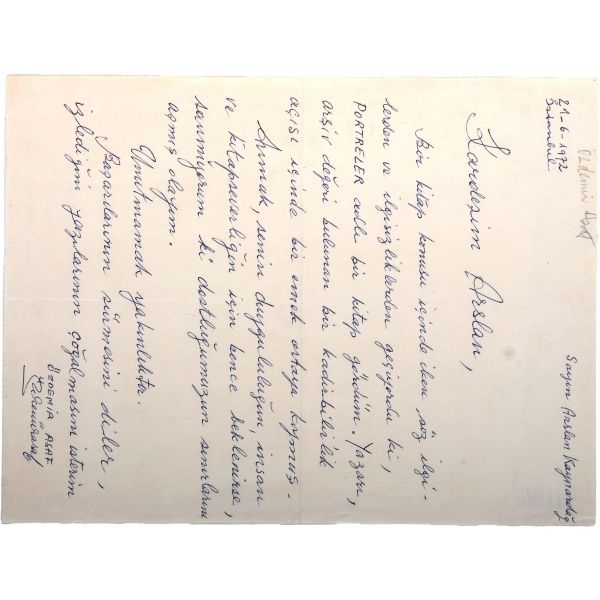 Özdemir Asaf
21-6-1972
İstanbul
Sayın Arslan Kaynardağ
Kardeşim Arslan,
Bir kitap konusu içinde iken, söz ilgi-
lerden ve ilgisizliklerden geçiyordu ki,
PORTRELER adlı bir kitap gördüm. Yazarı,
arşiv değeri bulunan bir kadirbilirlik
açısı içinde bir emek ortaya koymuş.
Anmak, senin duygululuğun insan
ve kitapseverliğin için bence beklenirse,
sanmıyorum ki dostluğumuzun sınırlarını
aşmış olayım.
Unutmamak yakınlıktır.
Başarılarının sürmesini diler,
izlediğim yazılarının çoğalmasını isterim
ÖZDEMİR ASAF